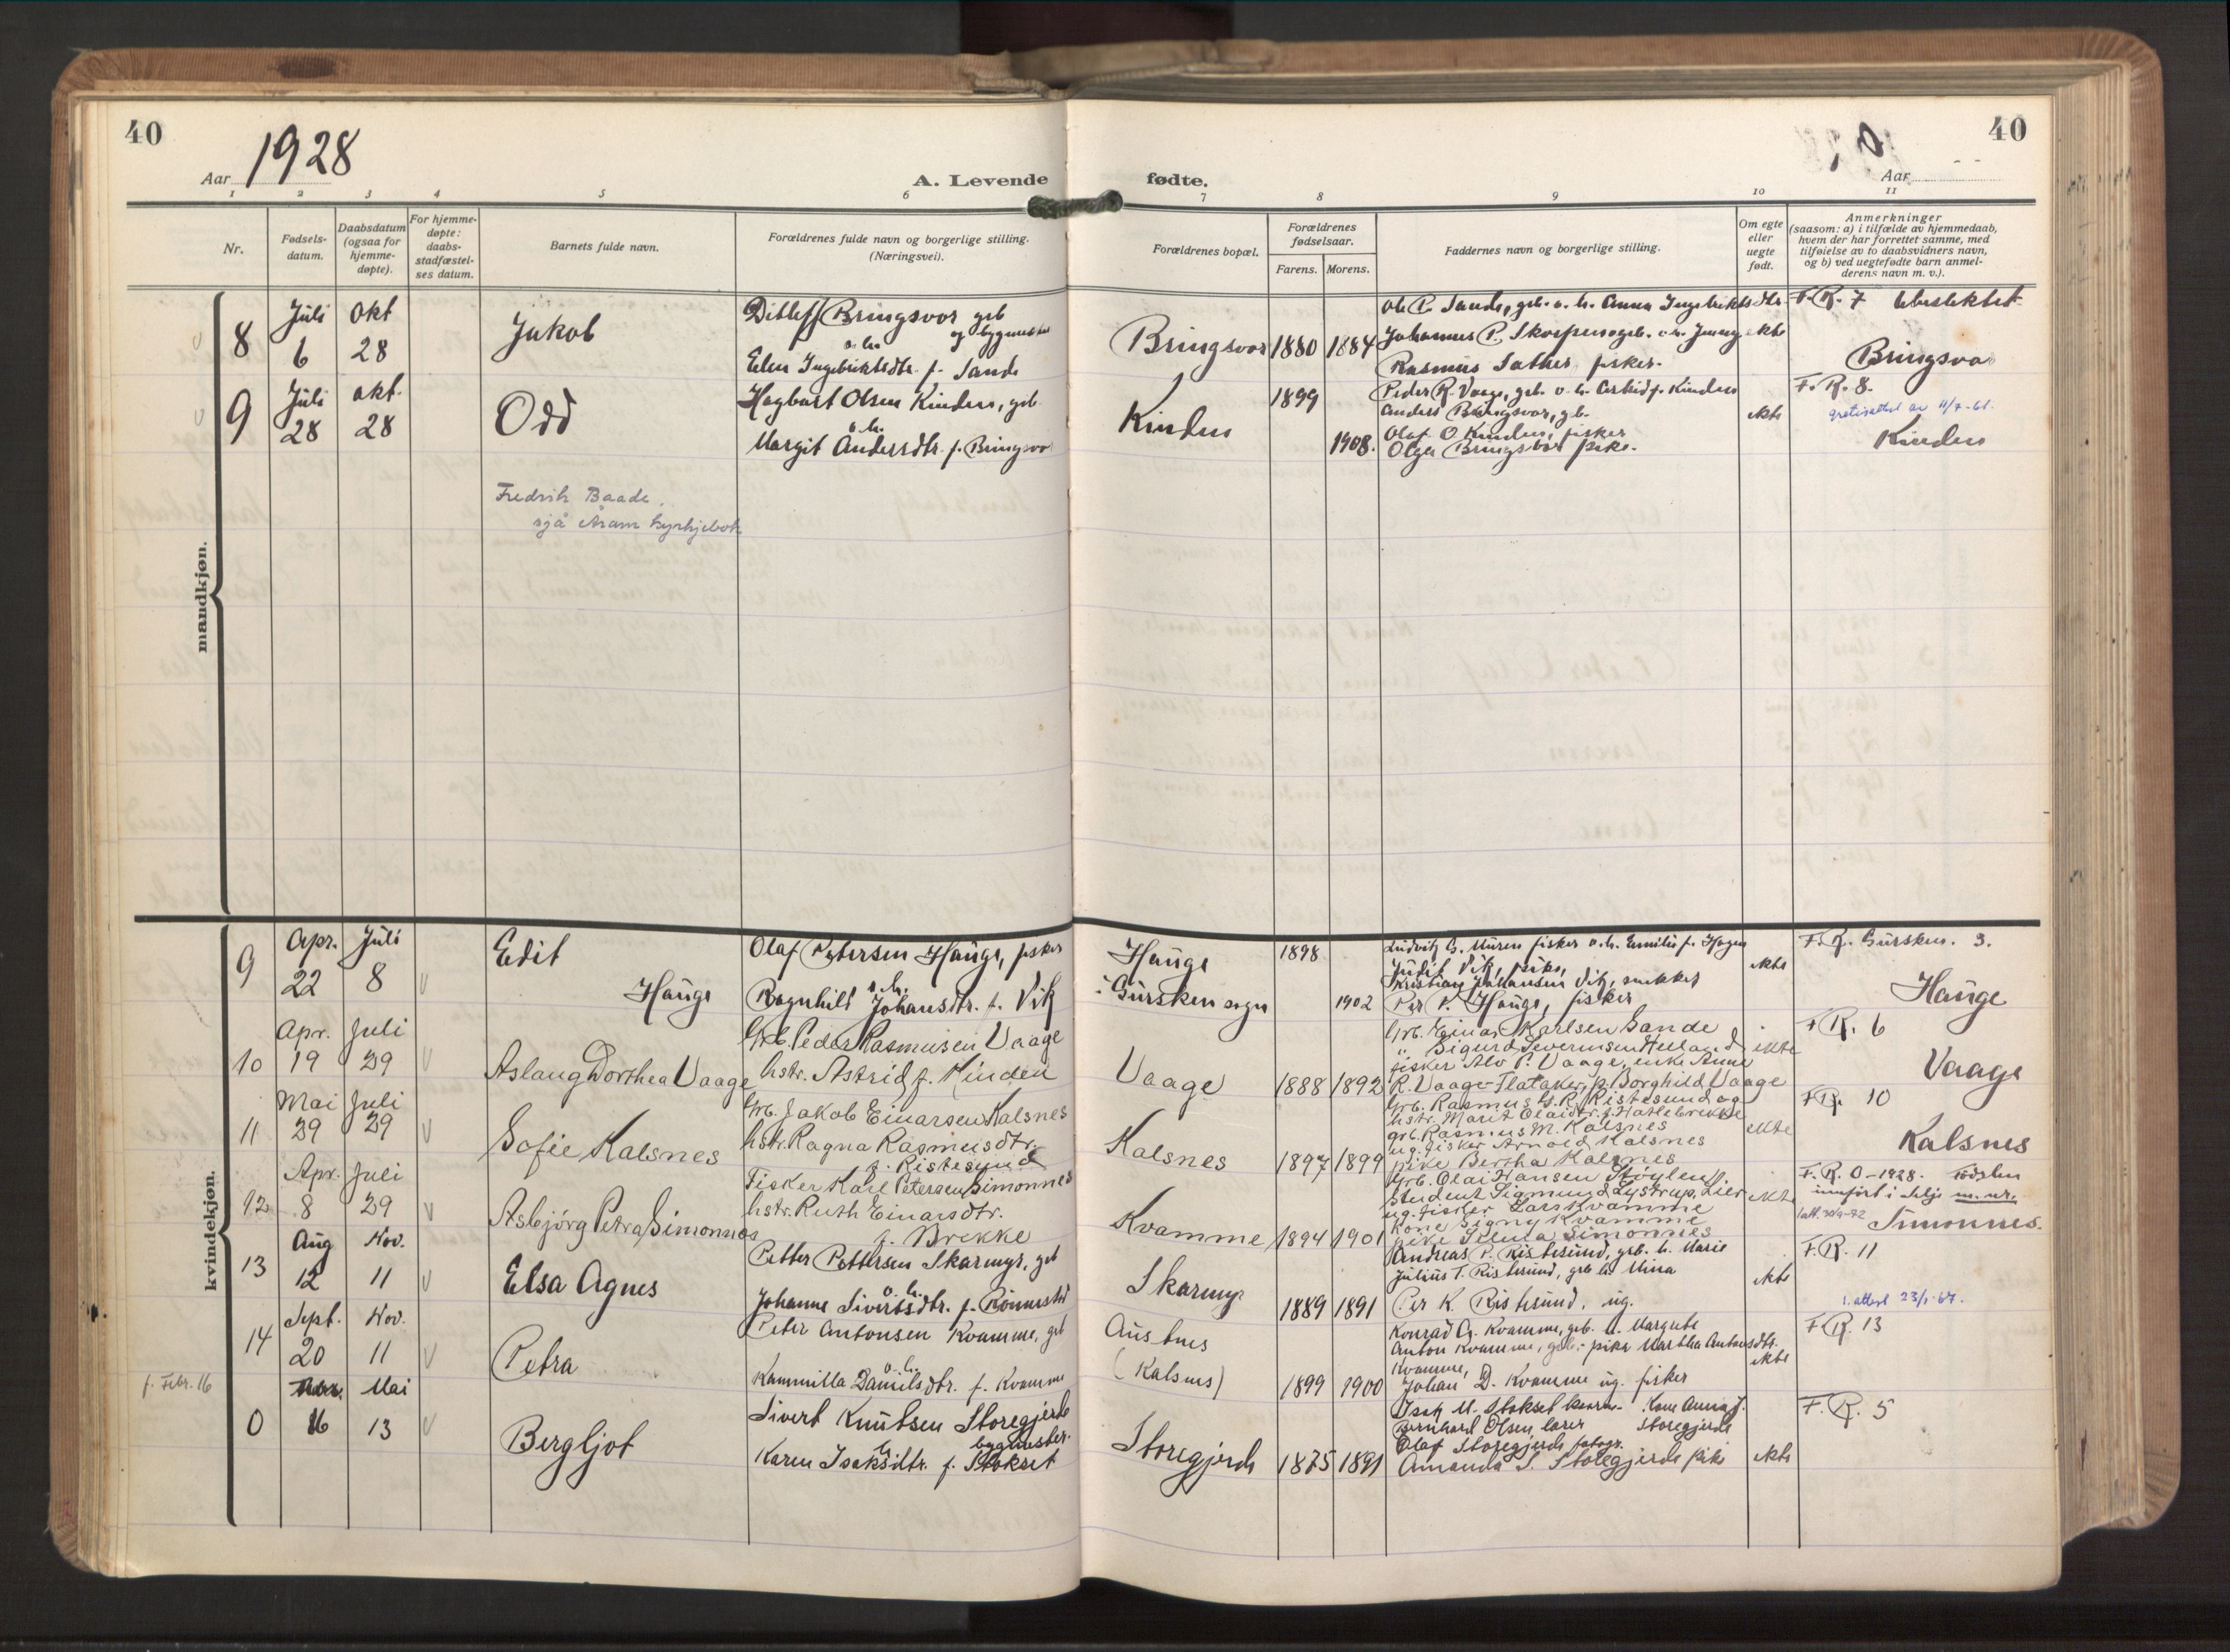 40
Aar 1928
A. Levende
fødte.
Aar
40
1 2 3 4 5 6 7 8 9 10 11
Nr.
Fødsels-
datum.
Daabsdatum
(ogsaa for
hjemme-
døpte).
For hjemme-
døpte:
daabs-
stadfæstel-
ses datum.
Barnets fulde navn.
Forældrenes fulde navn og borgerlige stilling.
(Næringsvei).
Forældrenes bopæl.
Forældrenes
fødselsaar.
Farens. Morens.
Faddernes navn og borgerlige stilling.
Om egte
eller
uegte
født.
Anmerkninger
(saasom: a) i tilfælde av hjemmedaab,
hvem der har forrettet samme, med
tilføielse av to daabsvidners navn,
og b) ved uegtefødte barn anmel-
derens navn m. v.).
mandkjøn.
8
Juli
6
Okt
28
Jakob
Ditleff Bringsvor grb
og bygmester
o. h.
Elen Ingebriktsdtr. f. Sande
Bringsvor
1880 1884
Ole P. Sande, grb. o. h. Anna Ingebriktsdtr.
Johannes P. Skorpen grb. o. h. Jenny
Rasmus Sather fisker.
ekte
F. R. 7
Bringsvo
9
Juli
28
okt.
28
Odd
Hagbart Olsen Kinden, grb.
o. h.
Margit Andersdtr. f. Bringsvo
Kinden
1899
1908.
Peder R. Vaage, grb. o. h. Astrid f. Kinden
Anders Bringsvor, gb.
Olaf O Kinden, fisker
Olga Bringsvor pike.
ekte
F. R. 8.
11/7-61.
Kinden
Fredrik Baade,
sjå Åram kyrkjebok
kvindekjøn.
9
Apr.
22
Juli
8
Edit
Hauge
Olaf Petersen Hauge, fisker
o. h.
Ragnhild Johansdtr. f. Vik
Hauge
i Gursken sogn
1898
1902
Ludvik G. Muren fisker o. h. Emilie f. Hagen
Judit Vik, pike,
Kristian Johansen Vik, snekker
Per P. Hauge, fisker
ekte
F. R. Gursken. 3.
Hauge
10
Apr.
19
Juli
29
Aslaug Dorthea Vaage
Grb. Peder Rasmusen Vaage
hstr. Astrid f. Kinden
Vaage
1888 1892
Grb. Einar Karlsen Sande
" Sigurd Severinsen Helland
fisker Alv P. Vaage, enke Anne
R. Vaage-Flataker, p. Borghild Vaage
ekte
F. R. 6
Vaage
11
Mai
29
Juli
29
Sofie Kalsnes
Grb. Jakob Einarsen Kalsnes
hstr. Ragna Rasmusdtr.
f. Ristesund
Kalsnes
1897 1899
Grb. Rasmus G. R. Ristesund og
hstr. Marit Olaidtr. f. Hatlebrekke
grb. Rasmus M. Kalsnes
ug. fisker Arnold Kalsnes
pike Bertha Kalsnes
ekte
F. R. 10
Kalsnes
12
Apr.
8
Juli
29
Asbjörg Petra Simonnes
Fisker Karl Petersen Simonnes
hstr. Ruth Einarsdtr.
f. Brekke
Kvamme
1894 1901
Grb. Olai Hansen Støylen
Student Sigmund Lystrup, Lier
ug. fisker Lars Kvamme
Kone Signy Kvamme
pike Selma Simonnes
ekte
F. R. 0-1928. Fødslen
innført i Selje m. nr.
Simonnes.
13
Aug
12
Nov.
11
Elsa Agnes
Petter Pettersen Skarmyr, grb
o. h.
Johanne Sivertsdtr. f. Rönnestad
Skarmyr
1889 1891
Andreas P. Ristesund, grb. h. Marie
Julius T. Ristesund, grb h. Mina
Per K. Ristesund, ug.
ekte
F. R. 11
1. attest 23/1-67.
14
Sept.
20
Nov.
11
Petra
Peter Antonsen Kvamme, grb
o. h.
Kammilla Danielsdtr. f. Kvamme
Austnes
(Kalsnes)
1899 1900
Konrad A. Kvamme, grb. h. Margrete
Anton Kvamme, grb. pike Martha Antonsdtr.
Kvamme,
Johan D. Kvamme ug. fisker
ekte
F. R. 13
f. Febr. 16
0
16
Mai
13
Bergljot
Sivert Knutsen Storegjerde
bygmester.
h.
Karen Isaksdtr. f. Stokset
Storegjerde
1875 1891
Isak M. Stokset Kone Anna J.
Bernhard Olsen, lærer Storegjerde
Olaf Storegjerde fotogr.
Amanda S. Storegjerde pike
ekte
F. R. 5